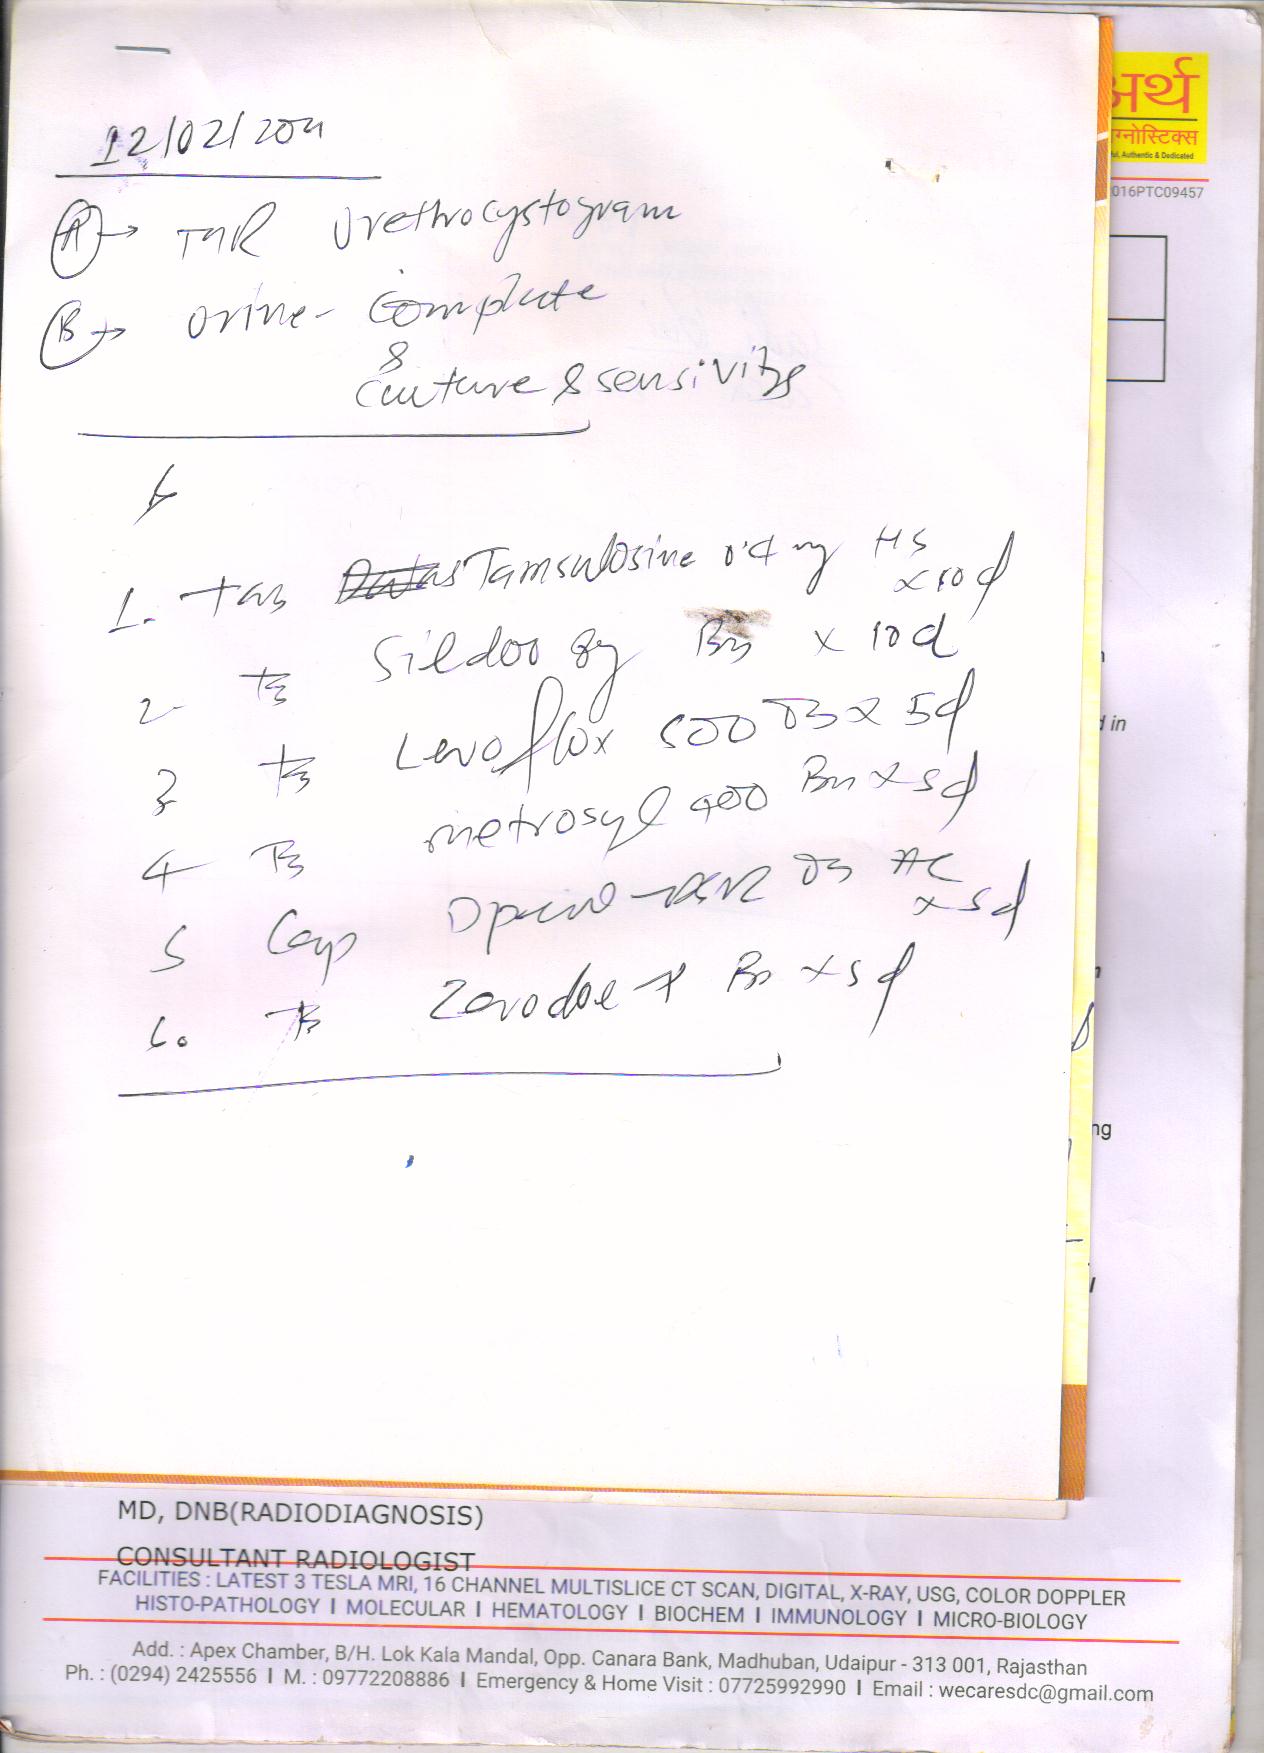 अर्थ
ग्नोस्टिक्स
ful, Authentic & Dedicated
2016PTC09457
12/02/20
A → Urethrocystogram
B → Urine - Complete
&
Cuuture & sensivity
1. Tab Tamsulosine 0.4 mg HS
x 10 d
2- Tb Sildoo 8g Bn x 10 d
3 Tb Levoflox 500 OB x 5d
4 Tb metrosyl 400 Bn x 5d
5 Cap DSR OB AC
x 5d
6. Tb Zerodol Bn x 5d
d in
ng
MD, DNB(RADIODIAGNOSIS)
CONSULTANT RADIOLOGIST
FACILITIES : LATEST 3 TESLA MRI, 16 CHANNEL MULTISLICE CT SCAN, DIGITAL, X-RAY, USG, COLOR DOPPLER
HISTO-PATHOLOGY I MOLECULAR I HEMATOLOGY I BIOCHEM I IMMUNOLOGY I MICRO-BIOLOGY
Add. : Apex Chamber, B/H. Lok Kala Mandal, Opp. Canara Bank, Madhuban, Udaipur - 313 001, Rajasthan
Ph. : (0294) 2425556 I M. : 09772208886 I Emergency & Home Visit : 07725992990 I Email : wecaresdc@gmail.com